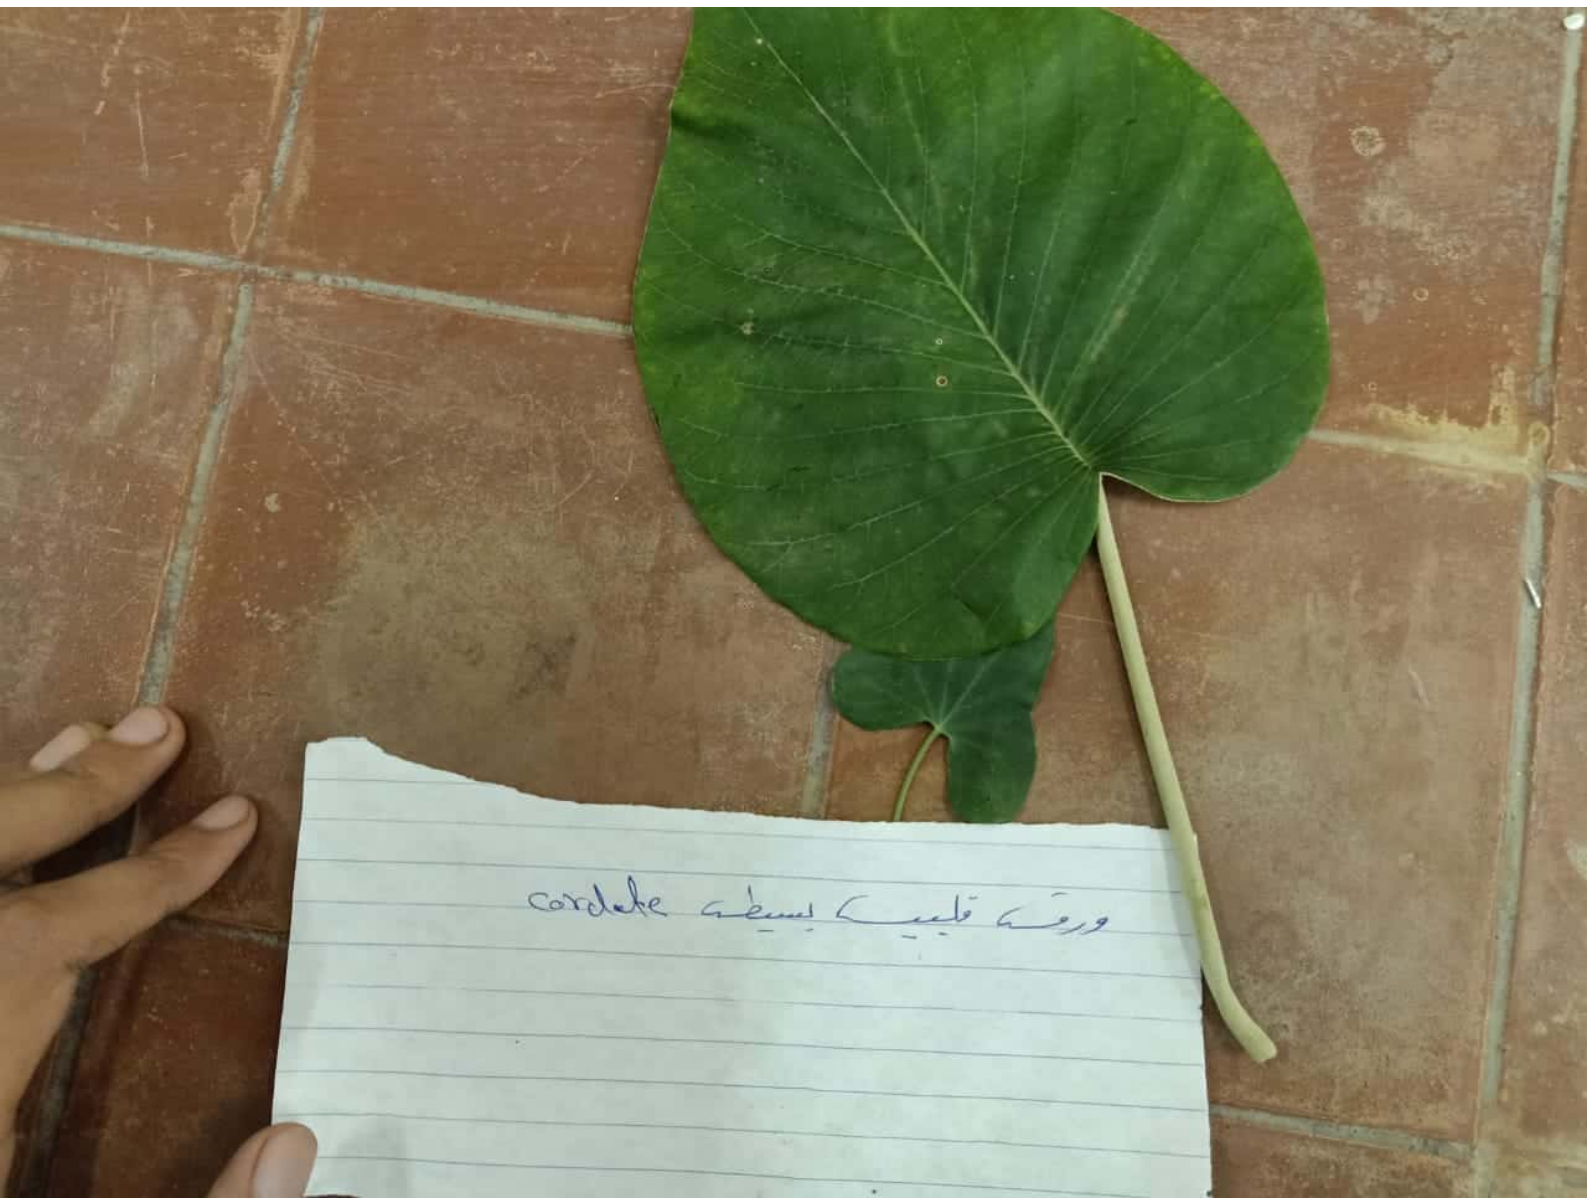 ورقة قلبية بسيطة cordate